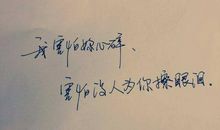 我害怕你心碎,
害怕没人为你擦眼泪.